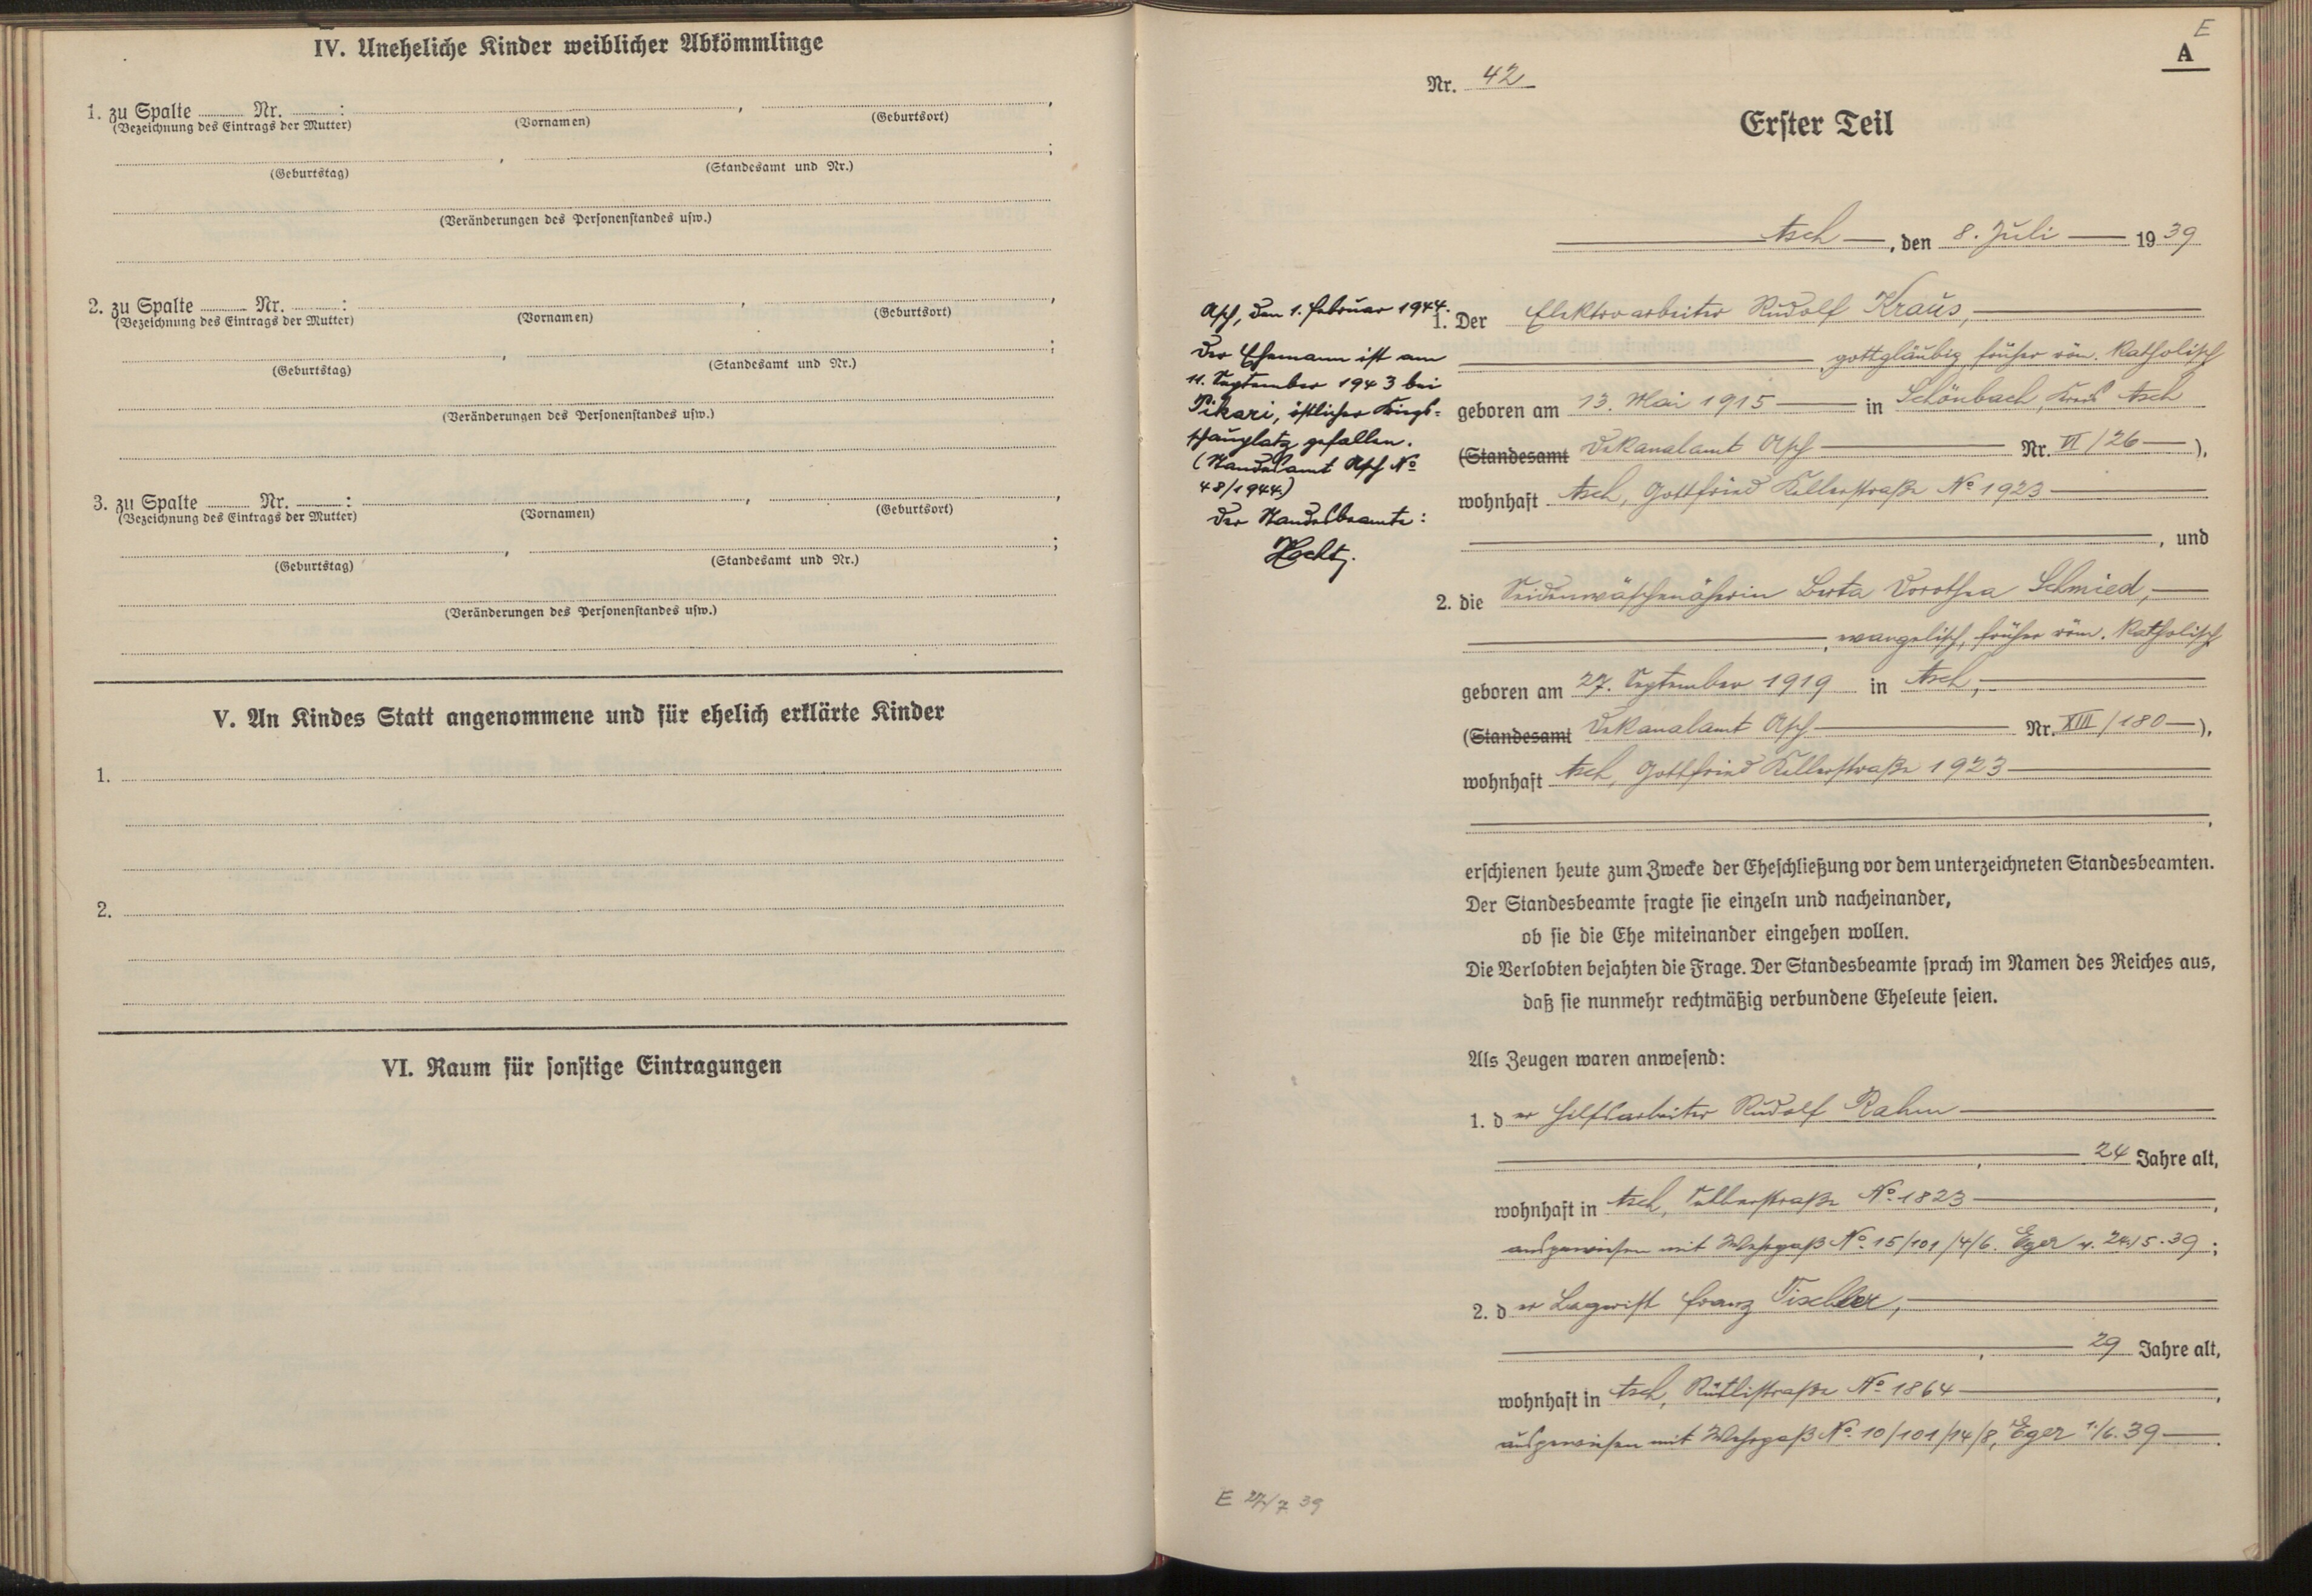 IV. Uneheliche Kinder weiblicher Abkömmlinge
1. zu Spalte ........ Nr. ........:
(Bezeichnung des Eintrags der Mutter)
(Vornamen)
(Geburtsort)
(Geburtstag)
(Standesamt und Nr.)
(Veränderungen des Personenstandes usw.)
2. zu Spalte ........ Nr. ........:
(Bezeichnung des Eintrags der Mutter)
(Vornamen)
(Geburtsort)
(Geburtstag)
(Standesamt und Nr.)
(Veränderungen des Personenstandes usw.)
3. zu Spalte ........ Nr. ........:
(Bezeichnung des Eintrags der Mutter)
(Vornamen)
(Geburtsort)
(Geburtstag)
(Standesamt und Nr.)
(Veränderungen des Personenstandes usw.)
V. An Kindes Statt angenommene und für ehelich erklärte Kinder
1.
2.
VI. Raum für sonstige Eintragungen
E
A
Nr. 42
Erster Teil
Asch, den 8. Juli 1939
Asch, den 1. Februar 1944.
Der Ehemann ist am
11. September 1943 bei
Pikari, östlicher Kriegs-
schauplatz gefallen.
(Standesamt Asch No
48/1944.)
Der Standesbeamte:
1. Der Elektroarbeiter Rudolf Kraus,
gottgläubig, früher röm. katholisch
geboren am 13. Mai 1915 in Schönbach, Kreis Asch
(Standesamt Dekanalamt Asch Nr. VI/26),
wohnhaft Asch, Gottfried Kellerstraße No 1923
, und
2. die Seidenwäschenäherin Berta Dorothea Schmied,
, evangelisch, früher röm. katholisch
geboren am 27. September 1919 in Asch,
(Standesamt Dekanalamt Asch Nr. XIII/180),
wohnhaft Asch, Gottfried Kellerstraße 1923
erschienen heute zum Zwecke der Eheschließung vor dem unterzeichneten Standesbeamten.
Der Standesbeamte fragte sie einzeln und nacheinander,
ob sie die Ehe miteinander eingehen wollen.
Die Verlobten bejahten die Frage. Der Standesbeamte sprach im Namen des Reiches aus,
daß sie nunmehr rechtmäßig verbundene Eheleute seien.
Als Zeugen waren anwesend:
1. der Hilfsarbeiter Rudolf Rahm
, 24 Jahre alt,
wohnhaft in Asch, No 1823,
ausgewiesen mit Wehrpaß No 15/101/4/6. Eger v. 24./5.39;
2. der Lagerist Franz Tischler,
, 29 Jahre alt,
wohnhaft in Asch, Rütlistraße No 1864,
ausgewiesen mit Wehrpaß No 10/101/14/8, Eger 1./6.39.
E 27/7 39